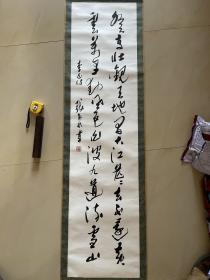 登高壮观天地间大江茫茫去不还黄
云万里动风色白波九道流雪山
李白诗